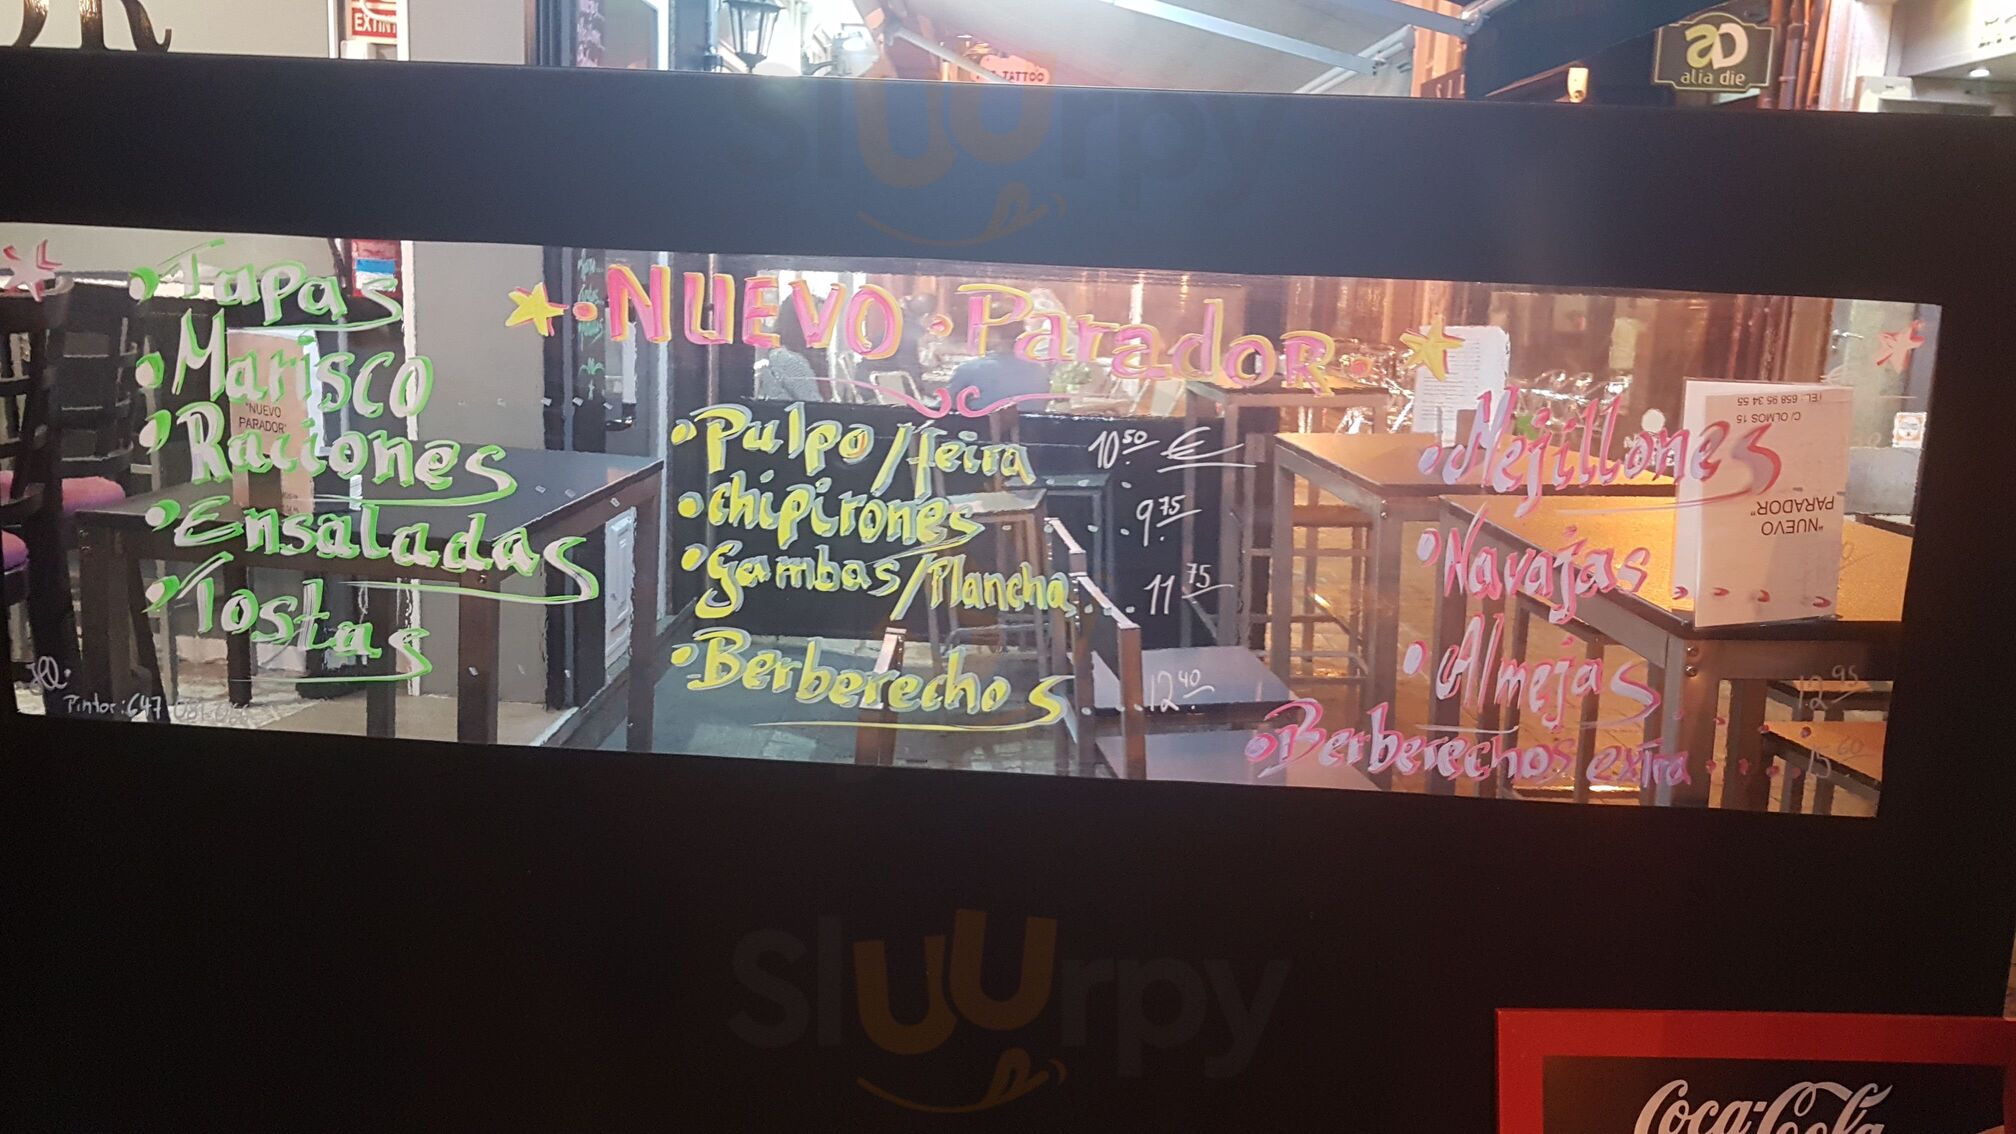 EXTIN
TATTOO
alia die
Sluurpy
• Tapas
• Marisco
• Raciones
• Ensaladas
• Tostas
Pintor: 647
• NUEVO • ParadoR •
• Pulpo/feira 10.50 €
• chipirones 9.75
• Gambas/Plancha 11.75
• Berberechos 12.40
• Mejillones
• Navajas
• Almejas 12.95
• Berberechos extra
"NUEVO
PARADOR"
TEL.: 658 95 34 55
C/ OLMOS 15
"NUEVO
PARADOR"
Sluurpy
Coca-Cola